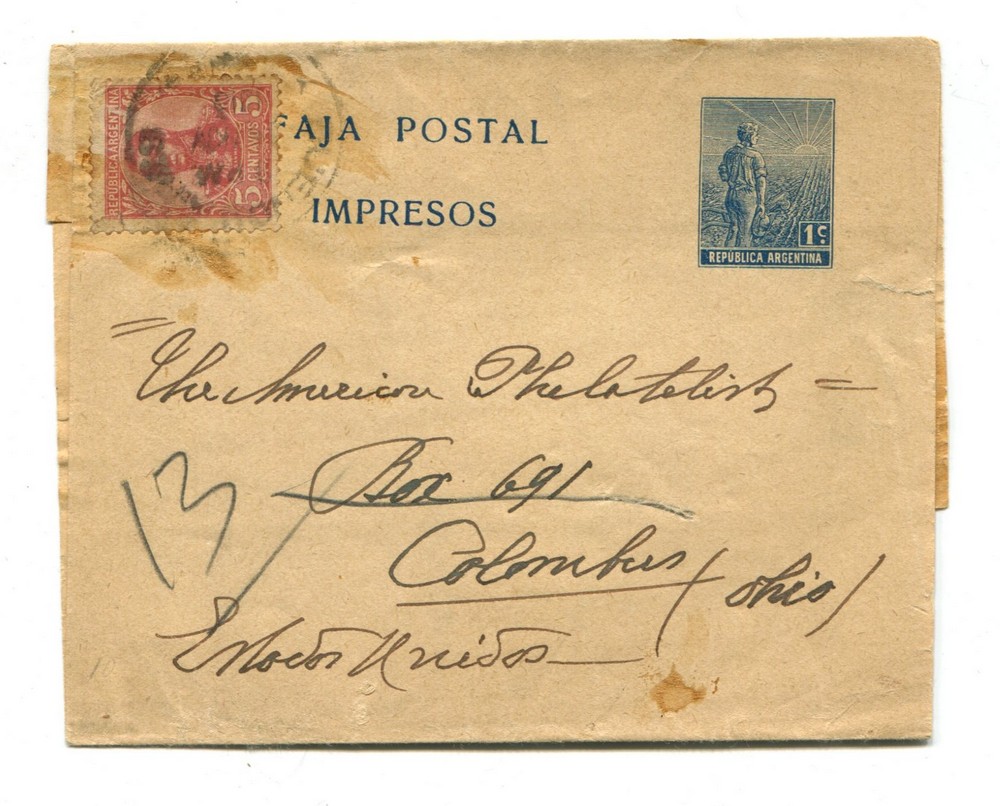 REPÚBLICA ARGENTINA
5 CENTAVOS 5
FAJA POSTAL
IMPRESOS
1c.
REPÚBLICA ARGENTINA
"The American Philatelist =
Box 691
Colombus (Ohio)
13
Estados Unidos